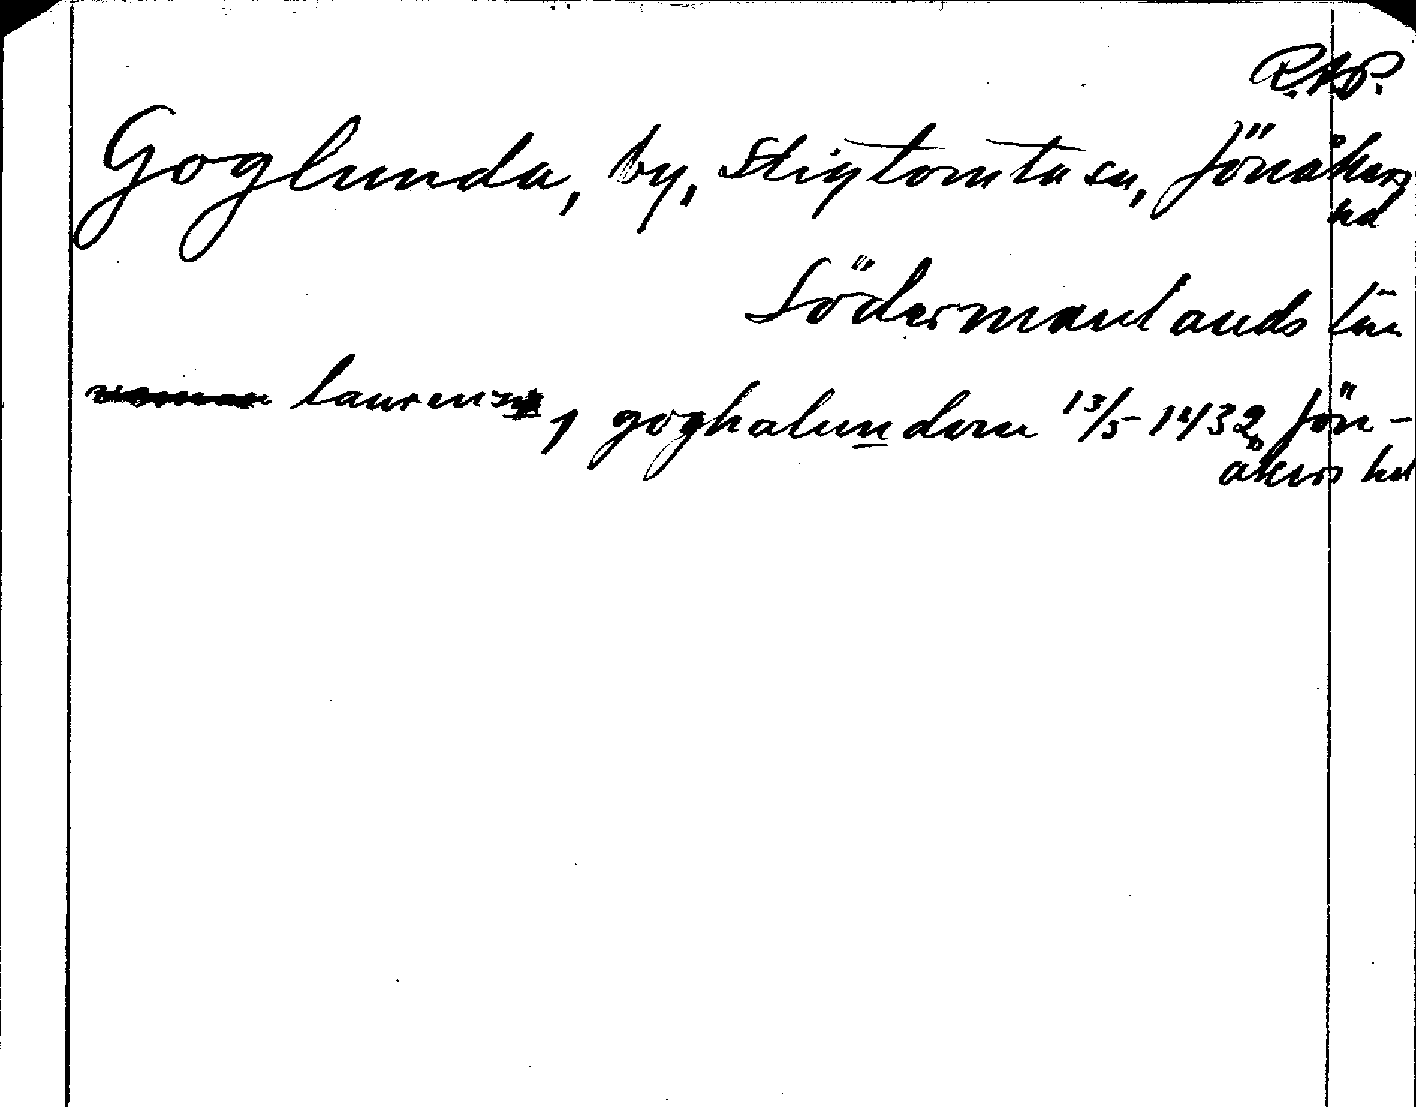 R.A.P.
Goglunda, by, Stigtomta sn, Jönåkers
hd
Södermanlands län
laurens, j goghalundom 13/5 1432 Jön-
åkers hd